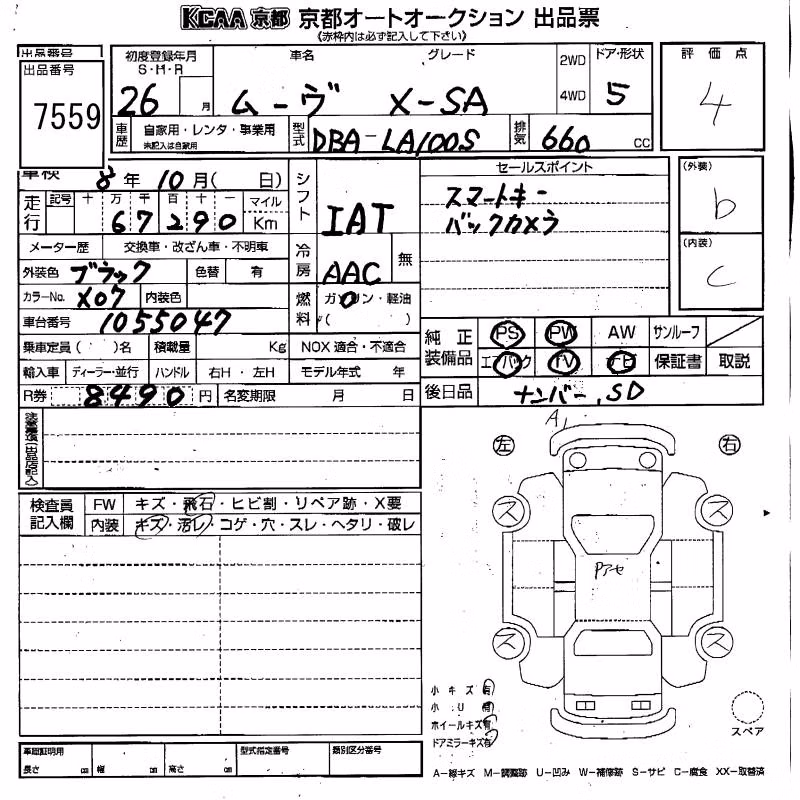 KCAA 京都 京都オートオークション 出品票
《赤枠内は必ず記入して下さい》
出品番号
7559
初度登録年月
S・H・R
26 月
車名
ムーヴ
グレード
X-SA
2WD
4WD
ドア・形状
5
評価点
4
車歴
自家用・レンタ・事業用
未記入は自家用
型式
DBA-LA100S
排気
660 cc
車検
8年10月( 日)
シフト
IAT
セールスポイント
スマートキー
バックカメラ
(外装)
b
(内装)
C
走行
記号 十 万 千 百 十 一 マイル
67290 Km
メーター歴 交換車・改ざん車・不明車
冷房
AAC
無
外装色 ブラック 色替 有
カラーNo. X07 内装色
燃料
ガソリン・軽油
( )
車台番号 1055047
乗車定員( )名 積載量 Kg NOX適合・不適合
輸入車 ディーラー・並行 ハンドル 右H・左H モデル年式 年
R券 8490円 名変期限 月 日
純正装備品
PS PW AW サンルーフ
エアバック TV ナビ 保証書 取説
後日品 ナンバー,SD
注意事項(出品店記入)
検査員記入欄
FW キズ・飛石・ヒビ割・リペア跡・X要
内装 キズ・汚レ・コゲ・穴・スレ・ヘタリ・破レ
A1
左 右
ス ス
Pアセ
ス ス
小キズ有
小U有
ホイールキズ有
ドアミラーキズ有
スペア
車庫証明用
長さ cm 幅 cm 高さ cm
型式指定番号
類別区分番号
A-線キズ M-調整跡 U-凹み W-補修跡 S-サビ C-腐食 XX-取替済